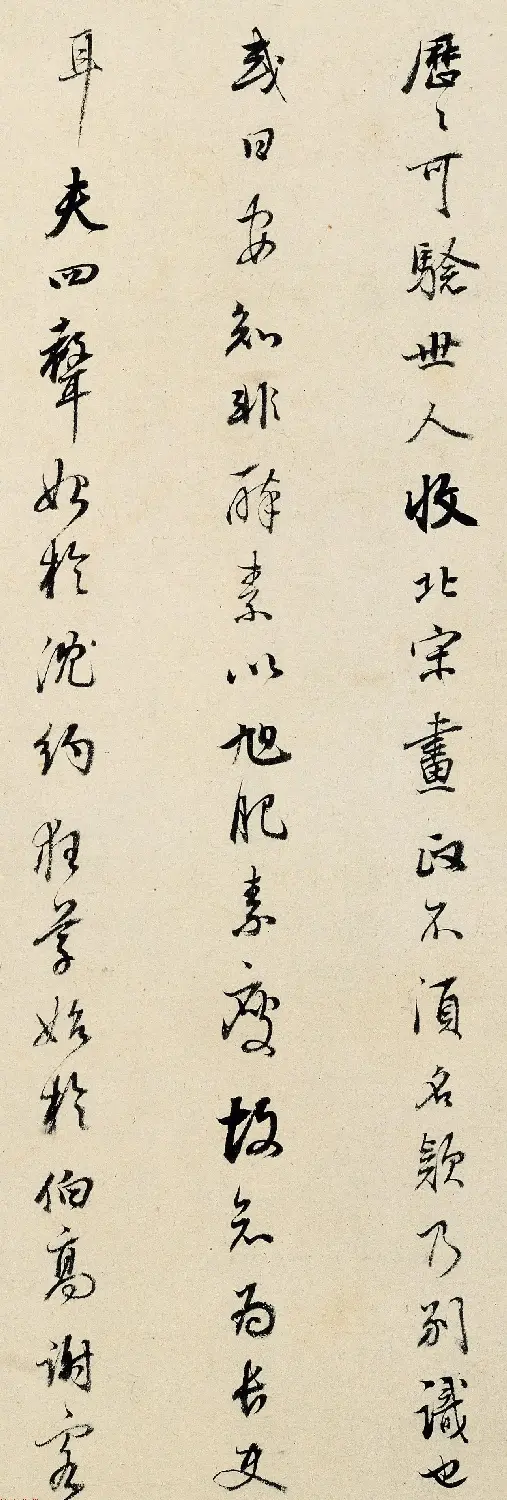 歷〻可驗世人收北宋畫政不須名款乃別識也
或曰安知非醉素以旭肥素瘦故知為長史
耳夫四聲始於沈約狂草始於伯高謝客